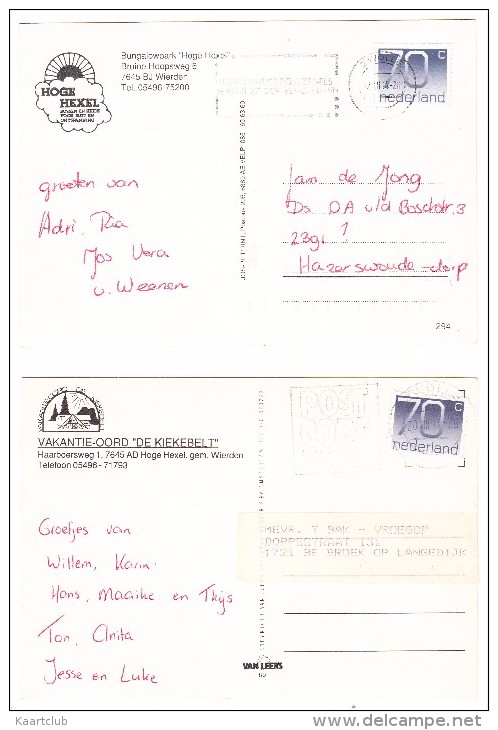 Bungalowpark "Hoge Hexel"
Bruine Hoopsweg 6
7645 BJ Wierden
Tel. 05496-75200
HOGE
HEXEL
70 c
nederland
groeten van
Adri, Ria
Jos Vera
v. Weenen
Jam de Jong
Ds DA v/d Boschstr. 3
Hazerswoude-dorp
294
VAKANTIE-OORD "DE KIEKEBELT"
Haarboersweg 1, 7645 AD Hoge Hexel, gem. Wierden
Telefoon 05496-71793
POST
70 c
nederland
MEVR. T BAK - VROEGOP
DORPSSTRAAT 131
1721 BE BROEK OP LANGEDIJK
Groetjes van
Willem, Karin
Hans, Maaike en Thijs
Ton, Anita
Jesse en Luke
VAN LEERS
Kaartclub
delcampe.net